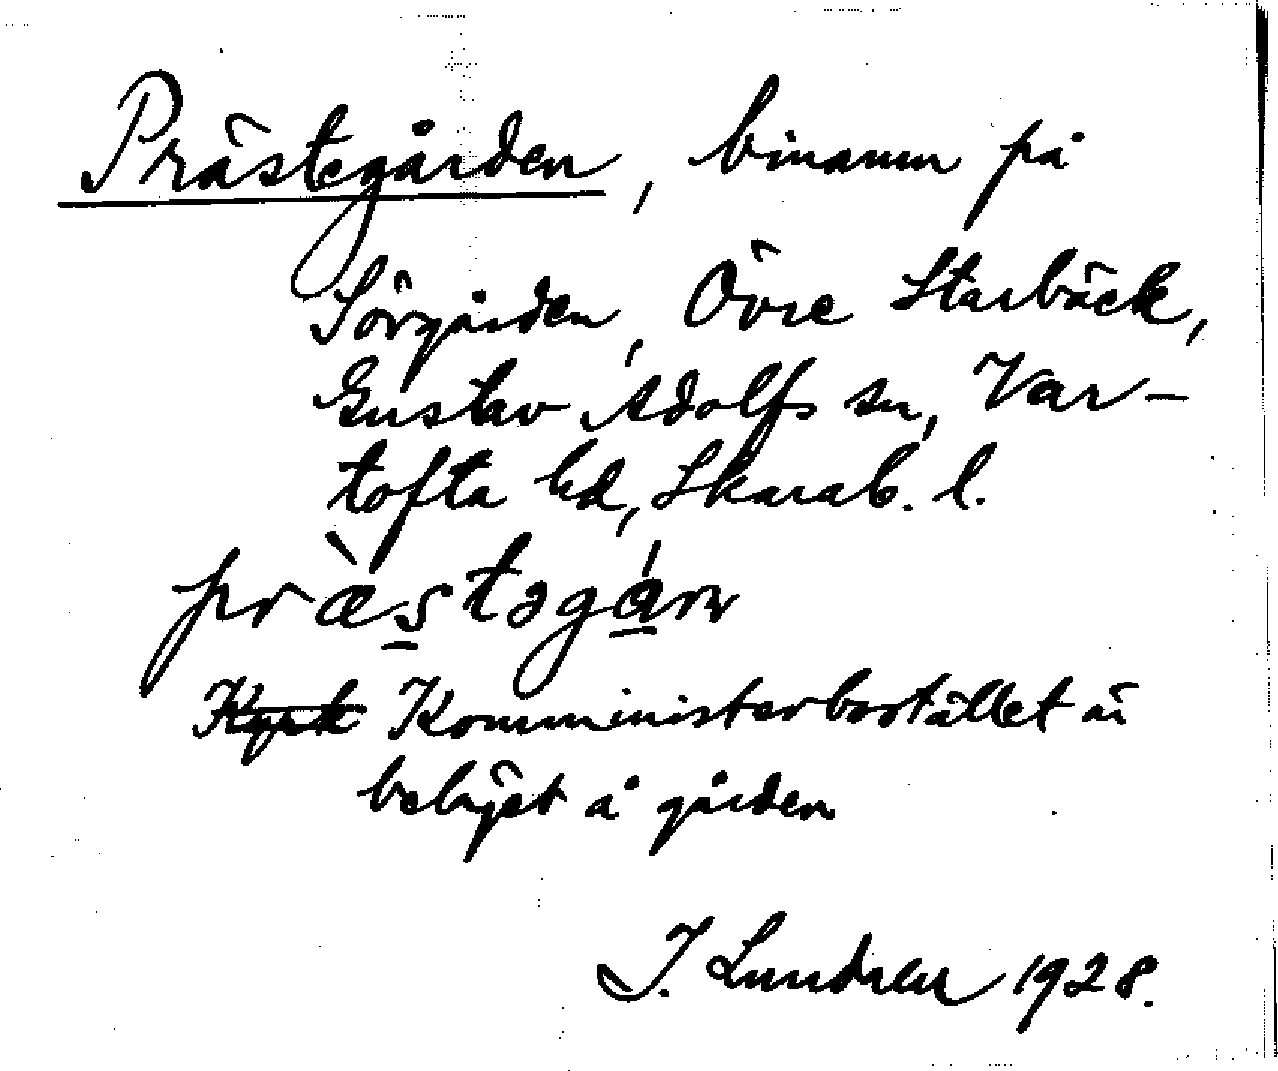 Prästegården, binamn på
Sörgården, Övre Starbäck,
Gustav Adolfs sn, Var-
tofta hd, Skarab. l.
præ̀stəgá̱rn
Kyrk Komministerbostället är
beläget å gården
J. Lundren 1928.